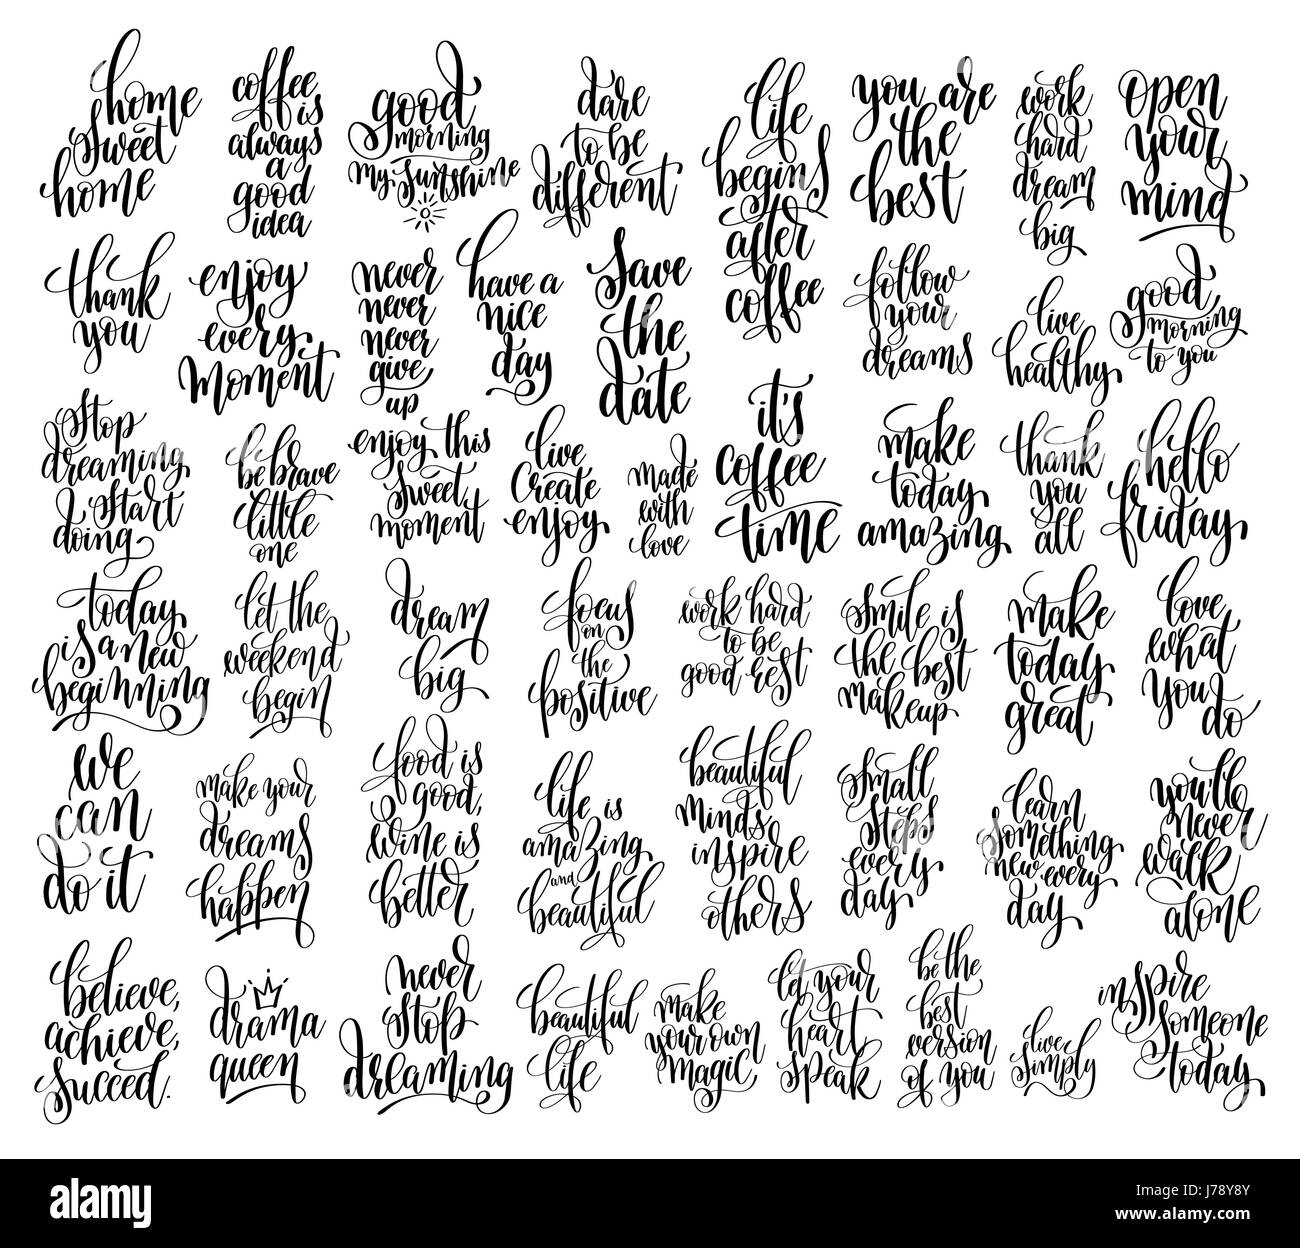 home
sweet
home
coffee
is
always
a
good
idea
good
morning
my sunshine
dare
to be
different
life
begins
after
coffee
you are
the
best
work
hard
dream
big
open
your
mind
thank
you
enjoy
every
moment
never
never
never
give
up
have a
nice
day
save
the
date
follow
your
dreams
live
healthy
good
morning
to you
stop
dreaming
start
doing
be brave
little
one
enjoy this
sweet
moment
live
create
enjoy
made
with
love
it's
coffee
time
make
today
amazing
thank
you
all
hello
friday
today
is a new
beginning
let the
weekend
begin
dream
big
focus
on
the
positive
work hard
to be
good rest
smile is
the best
makeup
make
today
great
love
what
you
do
we
can
do it
make your
dreams
happen
food is
good,
wine is
better
life is
amazing
and
beautiful
beautiful
minds
inspire
others
small
steps
every
day
learn
something
new every
day
you'll
never
walk
alone
believe,
achieve,
succeed.
drama
queen
never
stop
dreaming
beautiful
life
make
your own
magic
let your
heart
speak
be the
best
version
of you
live
simply
inspire
someone
today
alamy
Image ID: J78Y8Y
www.alamy.com